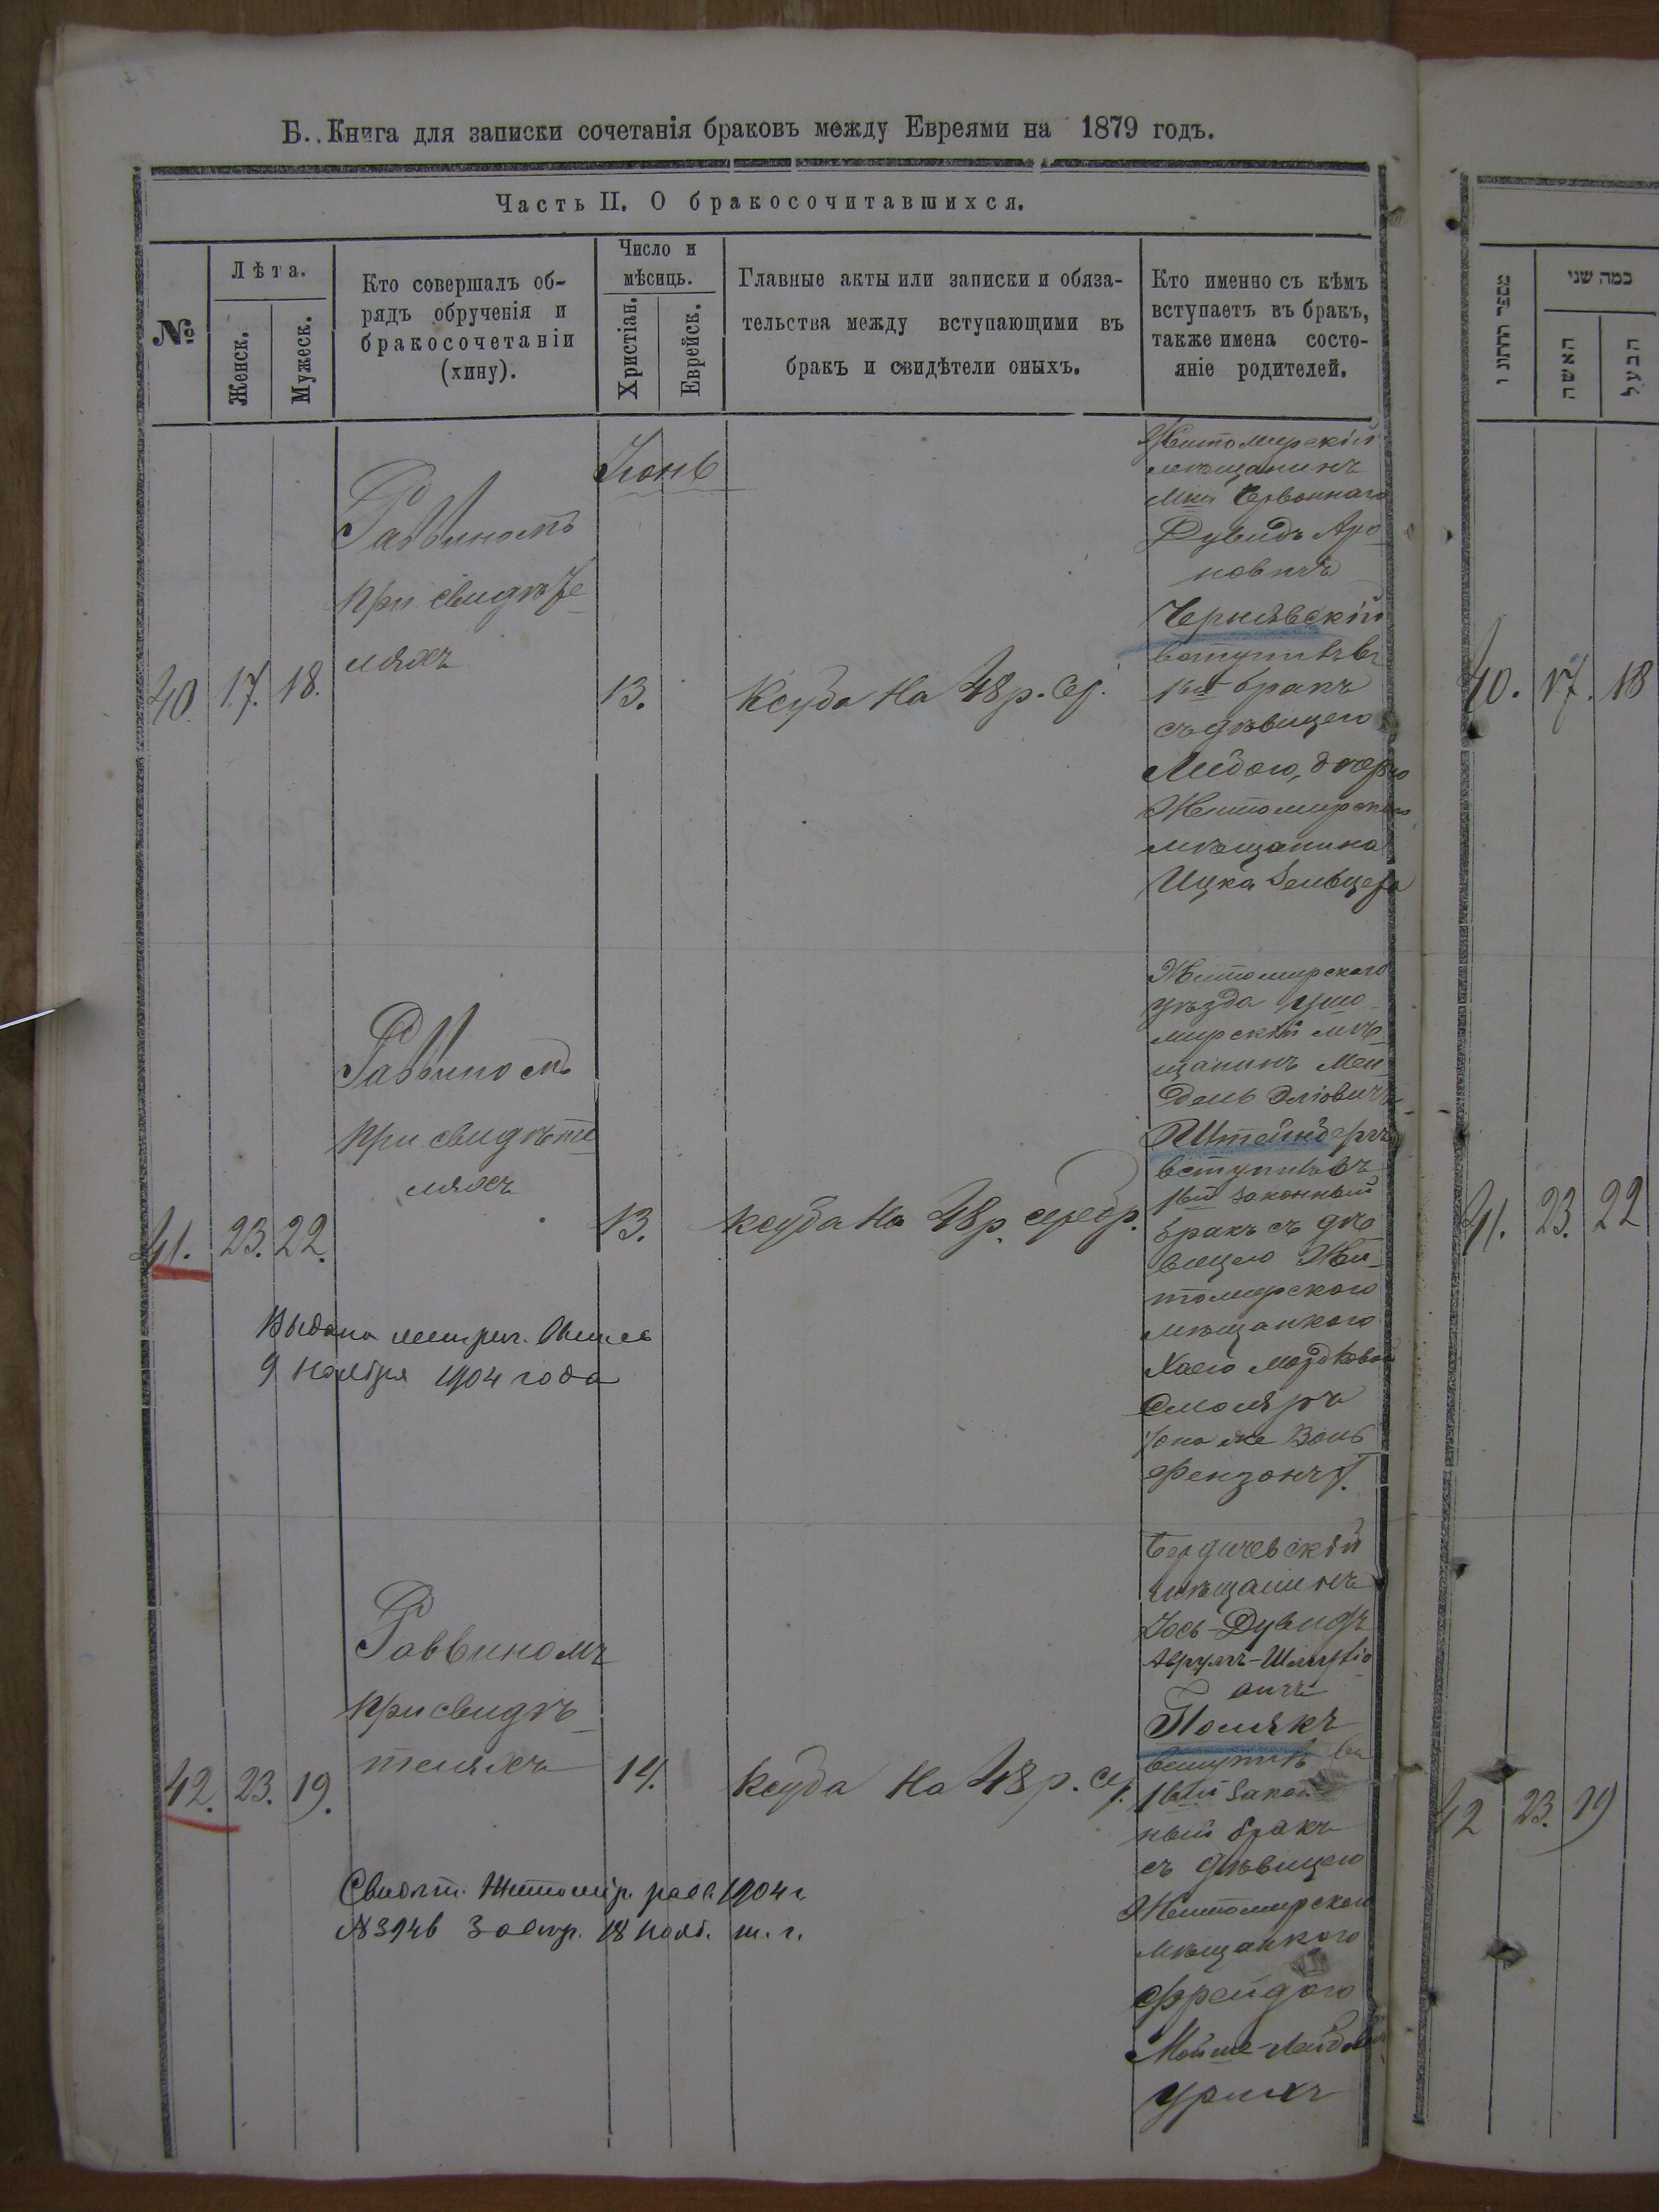 Б. Книга для записки сочетанія браковъ между Евреями на 1879 годъ.
Часть II. О бракосочитавшихся.
№
Лѣта.
Женск.
Мужеск.
Кто совершалъ об-
рядъ обрученія и
бракосочетаніи
(хину).
Число и
мѣсяць.
Христіан.
Еврейск.
Главные акты или записки и обяза-
тельства между вступающими въ
бракъ и свидѣтели оныхъ.
Кто именно съ кѣмъ
вступаетъ въ бракъ,
также имена состо-
яніе родителей.
Іюнь
40.
17.
18.
Раввиномъ
при свидѣте
ляхъ
13.
Ксуба на 48 р. сер.
Житомирскій
мѣщанинъ
Червоннаго
Дувидъ Аро
новичъ
Чернявскій
вступилъ въ
1ый бракъ
съ дѣвицею
Либою, дочерью
Житомирскаго
мѣщанина
Ицка Зельцера
41.
23.
22.
Раввиномъ
при свидѣте
ляхъ
13.
ксуба на 48 р. серебр.
Житомирскаго
уѣзда Ушо
мирскій мѣ
щанинъ Мен
дель Эліовичъ
Штейнбергъ
вступилъ въ
1ый законный
бракъ съ дѣ
вицею Жи
томирскою
мѣщанкою
Хаею Мордковой
Смоляръ
(она же Воль
Фензонъ).
Выдана метрич. выпись
9 ноября 1904 года
42.
23.
19.
Раввиномъ
при свидѣ
теляхъ
14.
ксуба на 48 р. сер.
Бердичевскій
мѣщанинъ
Іось-Дувидъ
Аврумъ-Шмуліо
вичъ
Полякъ
вступилъ въ
1ый закон
ный бракъ
съ дѣвицею
Житомирскою
мѣщанкою
Фрейдою
Мойше-Лейбовой
Урихъ
Свидѣт. Житомір. равв. 1904 г.
№ 3946 18 нояб. т. г.
מספר החתונו
כמה שני
האשה
הבעל
40.
17.
18
41.
23.
22
42
23.
19